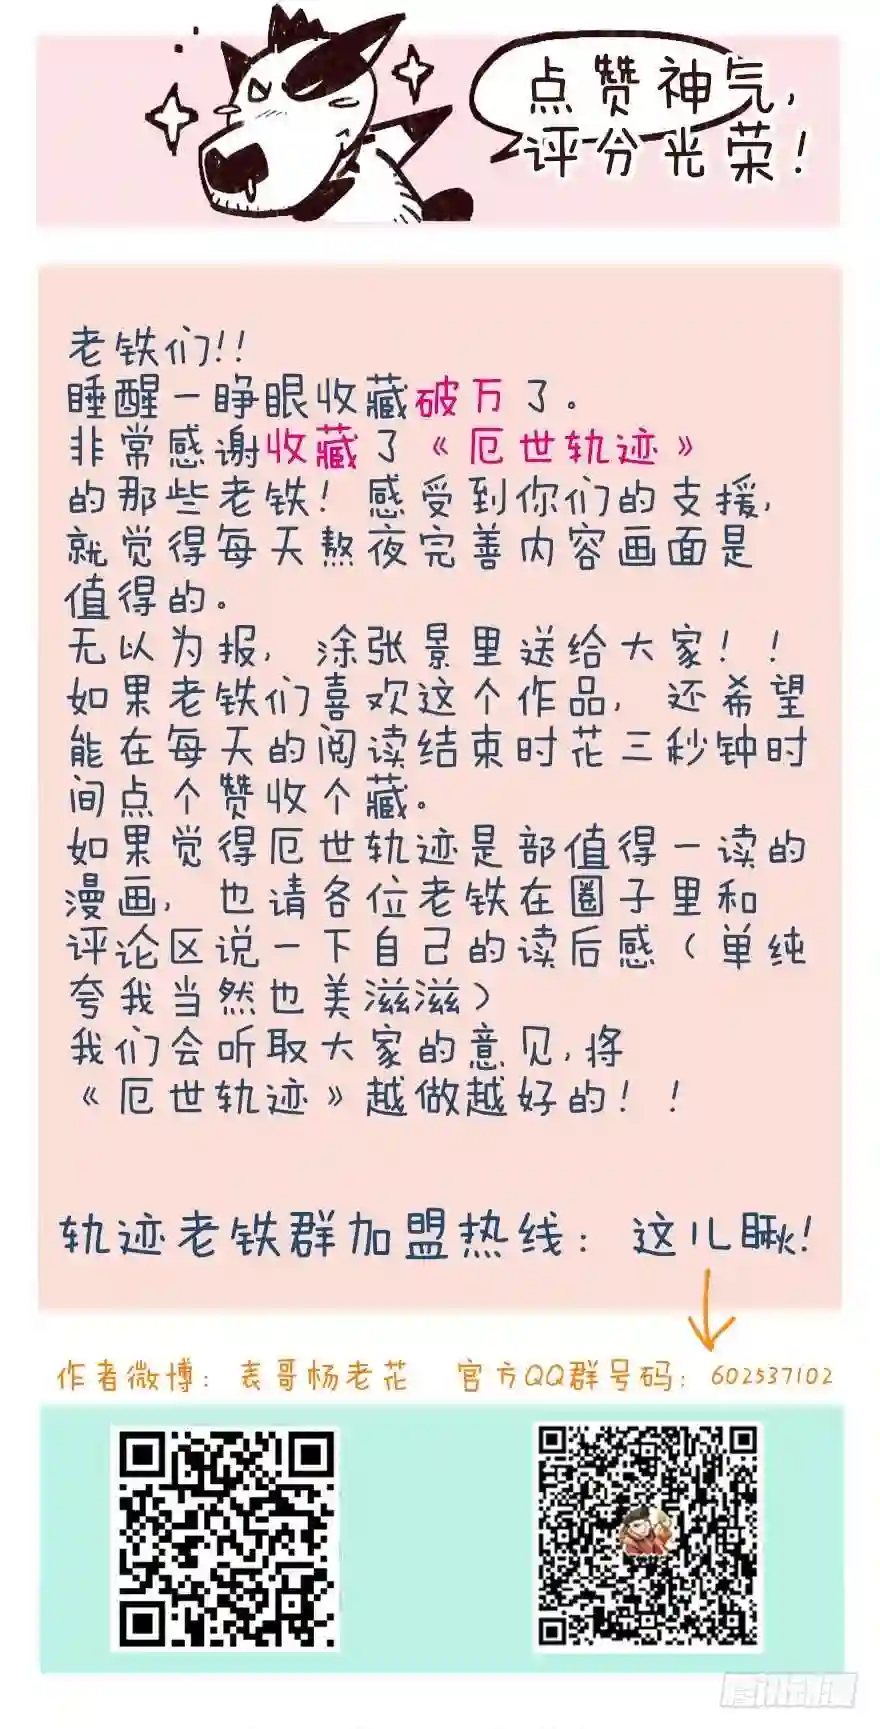 点赞神气,
评分光荣!
老铁们!!
睡醒一睁眼收藏破万了。
非常感谢收藏了《厄世轨迹》
的那些老铁! 感受到你们的支援,
就觉得每天熬夜完善内容画面是
值得的。
无以为报, 涂张景里送给大家! !
如果老铁们喜欢这个作品, 还希望
能在每天的阅读结束时花三秒钟时
间点个赞收个藏。
如果觉得厄世轨迹是部值得一读的
漫画, 也请各位老铁在圈子里和
评论区说一下自己的读后感(单纯
夸我当然也美滋滋)
我们会听取大家的意见,将
《厄世轨迹》越做越好的! !
轨迹老铁群加盟热线: 这儿瞅!
作者微博: 表哥杨老花 官方QQ群号码: 602537102